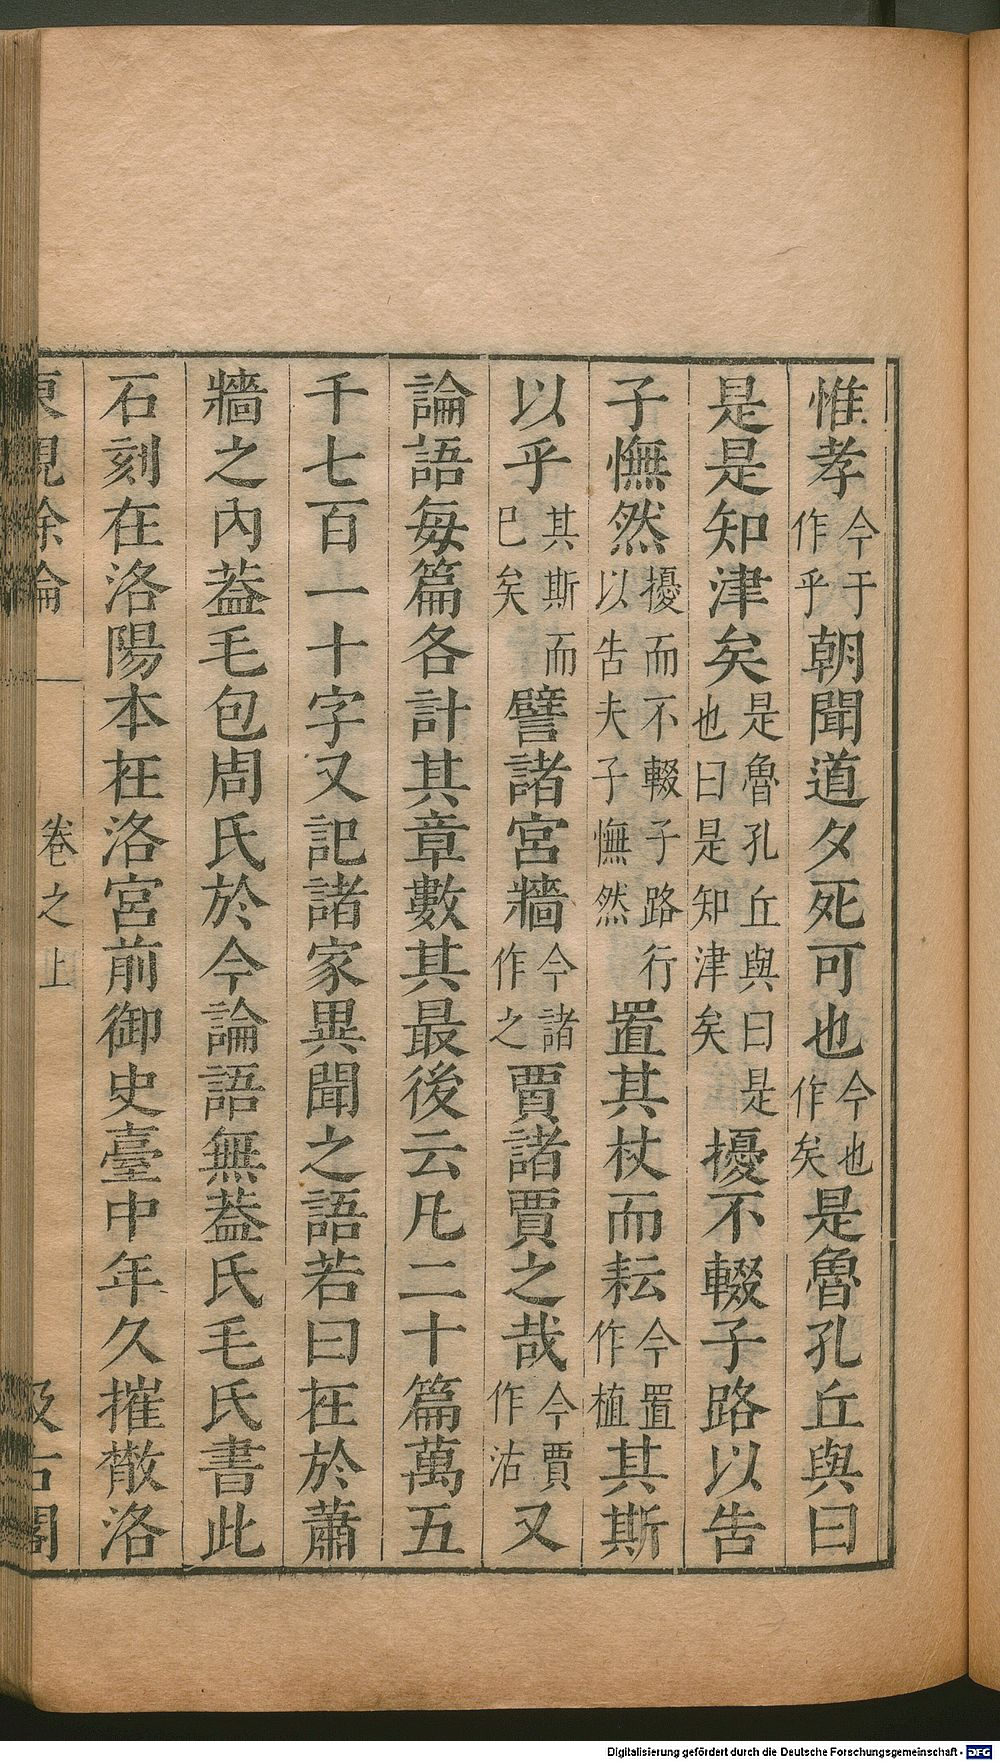 惟孝今于作乎朝聞道夕死可也今也作矣是魯孔丘與曰
是是知津矣是魯孔丘與曰是也曰是知津矣擾不輟子路以告
子憮然擾而不輟子路行以告夫子憮然置其杖而耘今置作植其斯
以乎其斯而巳矣譬諸宮牆今諸作之賈諸賈之哉今賈作沽又
論語每篇各計其章數其最後云凡二十篇萬五
千七百一十字又記諸家異聞之語若曰在於蕭
牆之內葢毛包周氏於今論語無葢氏毛氏書此
石刻在洛陽本在洛宮前御史臺中年久摧散洛
東觀餘論 卷之上 汲古閣
Digitalisierung gefördert durch die Deutsche Forschungsgemeinschaft - DFG